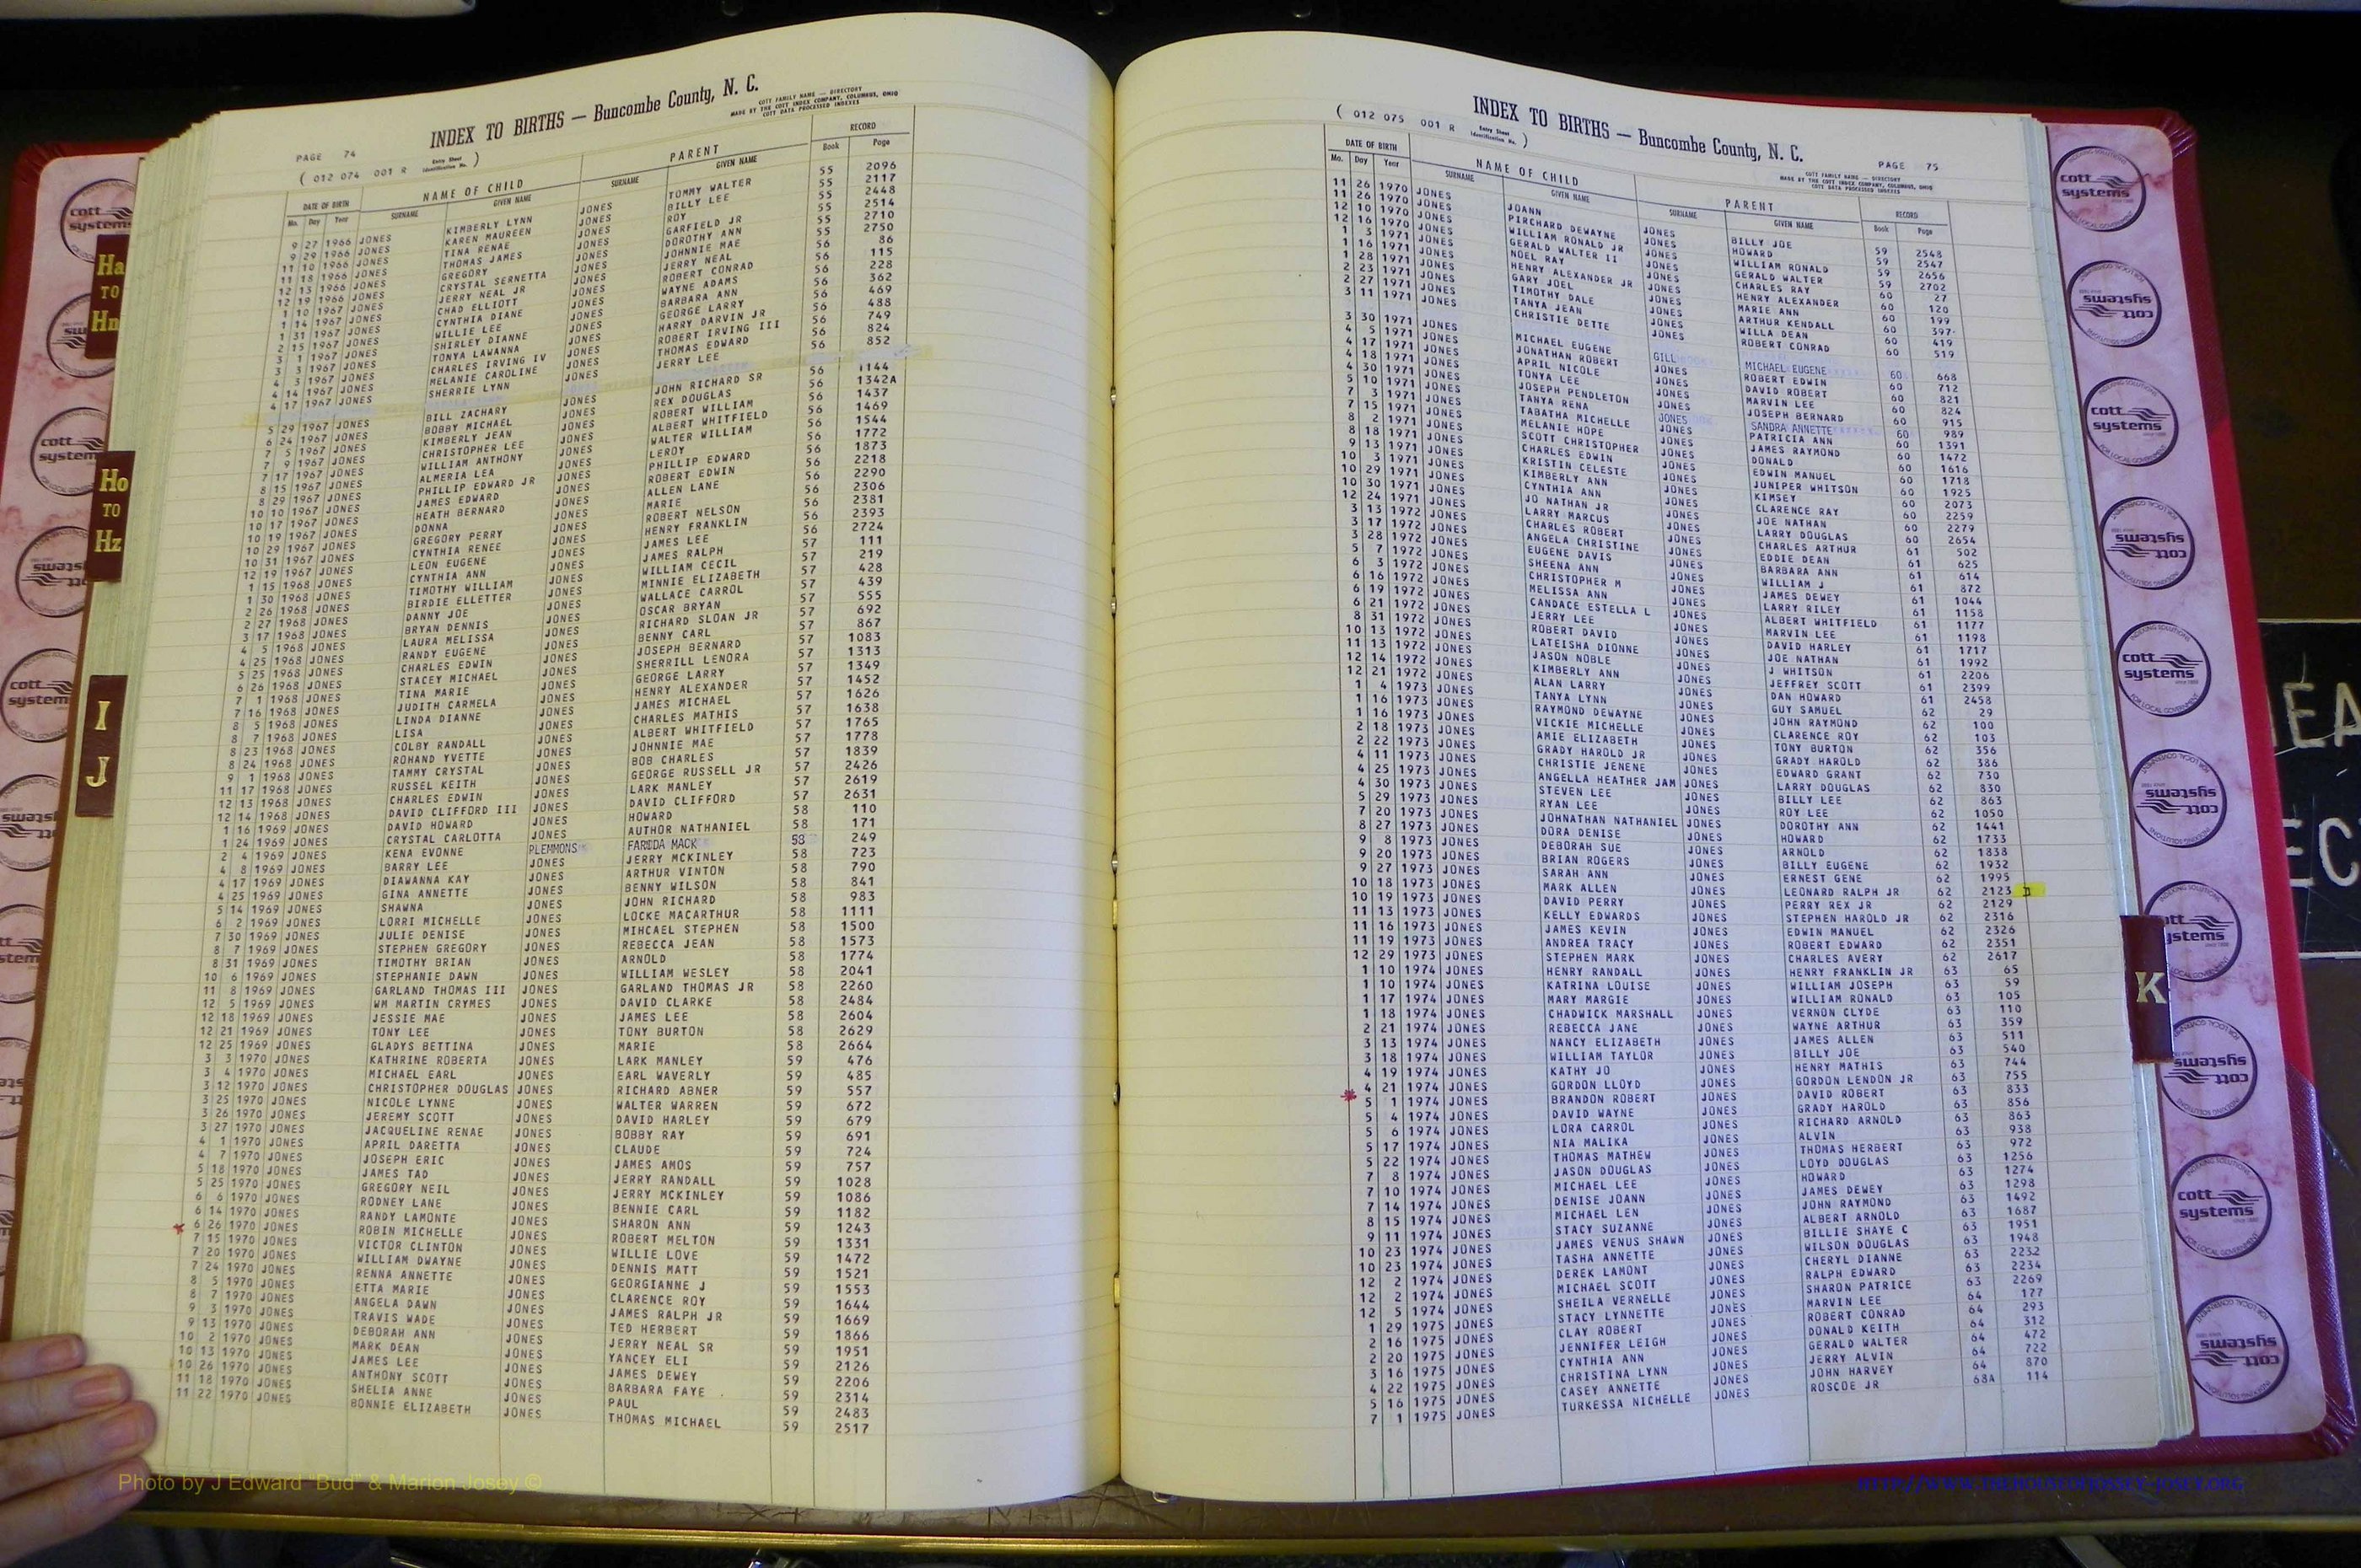 INDEX TO BIRTHS — Buncombe County, N. C.
COTT FAMILY NAME — DIRECTORY
MADE BY THE COTT INDEX COMPANY, COLUMBUS, OHIO
COTT DATA PROCESSED INDEXES
PAGE 74
( 012 074 001 R Entry Sheet Identification No. )
DATE OF BIRTH NAME OF CHILD PARENT RECORD
Mo. Day Year SURNAME GIVEN NAME SURNAME GIVEN NAME Book Page
9 27 1966 JONES KIMBERLY LYNN JONES TOMMY WALTER 55 2096
9 29 1966 JONES KAREN MAUREEN JONES BILLY LEE 55 2117
11 10 1966 JONES TINA RENAE JONES ROY 55 2448
11 18 1966 JONES THOMAS JAMES JONES GARFIELD JR 55 2514
12 13 1966 JONES GREGORY JONES DOROTHY ANN 55 2710
12 19 1966 JONES CRYSTAL SERNETTA JONES JOHNNIE MAE 55 2750
1 10 1967 JONES JERRY NEAL JR JONES JERRY NEAL 56 86
1 14 1967 JONES CHAD ELLIOTT JONES ROBERT CONRAD 56 115
1 31 1967 JONES CYNTHIA DIANE JONES WAYNE ADAMS 56 228
2 15 1967 JONES WILLIE LEE JONES BARBARA ANN 56 362
3 1 1967 JONES SHIRLEY DIANNE JONES GEORGE LARRY 56 469
3 3 1967 JONES TONYA LAWANNA JONES HARRY DARVIN JR 56 488
4 3 1967 JONES CHARLES IRVING IV JONES ROBERT IRVING III 56 749
4 14 1967 JONES MELANIE CAROLINE JONES THOMAS EDWARD 56 824
4 17 1967 JONES SHERRIE LYNN JONES JERRY LEE 56 852
5 29 1967 JONES BILL ZACHARY JONES JOHN RICHARD SR 56 1144
6 24 1967 JONES BOBBY MICHAEL JONES REX DOUGLAS 56 1342A
7 5 1967 JONES KIMBERLY JEAN JONES ROBERT WILLIAM 56 1437
7 9 1967 JONES CHRISTOPHER LEE JONES ALBERT WHITFIELD 56 1469
7 17 1967 JONES WILLIAM ANTHONY JONES WALTER WILLIAM 56 1544
8 15 1967 JONES ALMERIA LEA JONES LEROY 56 1772
8 29 1967 JONES PHILLIP EDWARD JR JONES PHILLIP EDWARD 56 1873
10 10 1967 JONES JAMES EDWARD JONES ROBERT EDWIN 56 2218
10 17 1967 JONES HEATH BERNARD JONES ALLEN LANE 56 2290
10 19 1967 JONES DONNA JONES MARIE 56 2306
10 29 1967 JONES GREGORY PERRY JONES ROBERT NELSON 56 2381
10 31 1967 JONES CYNTHIA RENEE JONES HENRY FRANKLIN 56 2393
12 19 1967 JONES LEON EUGENE JONES JAMES LEE 56 2724
1 15 1968 JONES CYNTHIA ANN JONES JAMES RALPH 57 111
1 30 1968 JONES TIMOTHY WILLIAM JONES WILLIAM CECIL 57 219
2 26 1968 JONES BIRDIE ELLETTER JONES MINNIE ELIZABETH 57 428
2 27 1968 JONES DANNY JOE JONES WALLACE CARROL 57 439
3 17 1968 JONES BRYAN DENNIS JONES OSCAR BRYAN 57 555
4 5 1968 JONES LAURA MELISSA JONES RICHARD SLOAN JR 57 692
4 25 1968 JONES RANDY EUGENE JONES BENNY CARL 57 867
5 25 1968 JONES CHARLES EDWIN JONES JOSEPH BERNARD 57 1083
6 26 1968 JONES STACEY MICHAEL JONES SHERRILL LENORA 57 1313
7 1 1968 JONES TINA MARIE JONES GEORGE LARRY 57 1349
7 16 1968 JONES JUDITH CARMELA JONES HENRY ALEXANDER 57 1452
8 5 1968 JONES LINDA DIANNE JONES JAMES MICHAEL 57 1626
8 7 1968 JONES LISA JONES CHARLES MATHIS 57 1638
8 23 1968 JONES COLBY RANDALL JONES ALBERT WHITFIELD 57 1765
8 24 1968 JONES ROHAND YVETTE JONES JOHNNIE MAE 57 1778
9 1 1968 JONES TAMMY CRYSTAL JONES BOB CHARLES 57 1839
11 17 1968 JONES RUSSEL KEITH JONES GEORGE RUSSELL JR 57 2426
12 13 1968 JONES CHARLES EDWIN JONES LARK MANLEY 57 2619
12 14 1968 JONES DAVID CLIFFORD III JONES DAVID CLIFFORD 57 2631
1 16 1969 JONES DAVID HOWARD JONES HOWARD 58 110
1 24 1969 JONES CRYSTAL CARLOTTA JONES AUTHOR NATHANIEL 58 171
2 4 1969 JONES KENA EVONNE PLEMMONS MACK 58 249
4 8 1969 JONES BARRY LEE JONES JERRY MCKINLEY 58 723
4 17 1969 JONES DIAWANNA KAY JONES ARTHUR VINTON 58 790
4 25 1969 JONES GINA ANNETTE JONES BENNY WILSON 58 841
5 14 1969 JONES SHAWNA JONES JOHN RICHARD 58 983
6 2 1969 JONES LORRI MICHELLE JONES LOCKE MACARTHUR 58 1111
7 30 1969 JONES JULIE DENISE JONES MIHCAEL STEPHEN 58 1500
8 7 1969 JONES STEPHEN GREGORY JONES REBECCA JEAN 58 1573
8 31 1969 JONES TIMOTHY BRIAN JONES ARNOLD 58 1774
10 6 1969 JONES STEPHANIE DAWN JONES WILLIAM WESLEY 58 2041
11 8 1969 JONES GARLAND THOMAS III JONES GARLAND THOMAS JR 58 2260
12 5 1969 JONES WM MARTIN CRYMES JONES DAVID CLARKE 58 2484
12 18 1969 JONES JESSIE MAE JONES JAMES LEE 58 2604
12 21 1969 JONES TONY LEE JONES TONY BURTON 58 2629
12 25 1969 JONES GLADYS BETTINA JONES MARIE 58 2664
3 3 1970 JONES KATHRINE ROBERTA JONES LARK MANLEY 59 476
3 4 1970 JONES MICHAEL EARL JONES EARL WAVERLY 59 485
3 12 1970 JONES CHRISTOPHER DOUGLAS JONES RICHARD ABNER 59 557
3 25 1970 JONES NICOLE LYNNE JONES WALTER WARREN 59 672
3 26 1970 JONES JEREMY SCOTT JONES DAVID HARLEY 59 679
3 27 1970 JONES JACQUELINE RENAE JONES BOBBY RAY 59 691
4 1 1970 JONES APRIL DARETTA JONES CLAUDE 59 724
4 7 1970 JONES JOSEPH ERIC JONES JAMES AMOS 59 757
5 18 1970 JONES JAMES TAD JONES JERRY RANDALL 59 1028
5 25 1970 JONES GREGORY NEIL JONES JERRY MCKINLEY 59 1086
6 6 1970 JONES RODNEY LANE JONES BENNIE CARL 59 1182
6 14 1970 JONES RANDY LAMONTE JONES SHARON ANN 59 1243
6 26 1970 JONES ROBIN MICHELLE JONES ROBERT MELTON 59 1331
7 15 1970 JONES VICTOR CLINTON JONES WILLIE LOVE 59 1472
7 20 1970 JONES WILLIAM DWAYNE JONES DENNIS MATT 59 1521
7 24 1970 JONES RENNA ANNETTE JONES GEORGIANNE J 59 1553
8 5 1970 JONES ETTA MARIE JONES CLARENCE ROY 59 1644
8 7 1970 JONES ANGELA DAWN JONES JAMES RALPH JR 59 1669
9 3 1970 JONES TRAVIS WADE JONES TED HERBERT 59 1866
9 13 1970 JONES DEBORAH ANN JONES JERRY NEAL SR 59 1951
10 2 1970 JONES MARK DEAN JONES YANCEY ELI 59 2126
10 13 1970 JONES JAMES LEE JONES JAMES DEWEY 59 2206
10 26 1970 JONES ANTHONY SCOTT JONES BARBARA FAYE 59 2314
11 18 1970 JONES SHELIA ANNE JONES PAUL 59 2483
11 22 1970 JONES BONNIE ELIZABETH JONES THOMAS MICHAEL 59 2517
( 012 075 001 R Entry Sheet Identification No. )
INDEX TO BIRTHS — Buncombe County, N. C.
PAGE 75
COTT FAMILY NAME — DIRECTORY
MADE BY THE COTT INDEX COMPANY, COLUMBUS, OHIO
COTT DATA PROCESSED INDEXES
DATE OF BIRTH NAME OF CHILD PARENT RECORD
Mo. Day Year SURNAME GIVEN NAME SURNAME GIVEN NAME Book Page
11 26 1970 JONES JOANN JONES BILLY JOE 59 2548
11 26 1970 JONES PIRCHARD DEWAYNE JONES HOWARD 59 2547
12 10 1970 JONES WILLIAM RONALD JR JONES WILLIAM RONALD 59 2656
12 16 1970 JONES GERALD WALTER II JONES GERALD WALTER 59 2702
1 3 1971 JONES NOEL RAY JONES CHARLES RAY 60 27
1 16 1971 JONES HENRY ALEXANDER JR JONES HENRY ALEXANDER 60 120
1 28 1971 JONES GARY JOEL JONES MARIE ANN 60 199
2 23 1971 JONES TIMOTHY DALE JONES ARTHUR KENDALL 60 397
2 27 1971 JONES TANYA JEAN JONES WILLA DEAN 60 419
3 11 1971 JONES CHRISTIE DETTE JONES ROBERT CONRAD 60 519
3 30 1971 JONES MICHAEL EUGENE GILL MICHAEL EUGENE 60 668
4 5 1971 JONES JONATHAN ROBERT JONES ROBERT EDWIN 60 712
4 17 1971 JONES APRIL NICOLE JONES DAVID ROBERT 60 821
4 18 1971 JONES TONYA LEE JONES MARVIN LEE 60 824
4 30 1971 JONES JOSEPH PENDLETON JONES JOSEPH BERNARD 60 915
5 10 1971 JONES TANYA RENA JONES SANDRA ANNETTE 60 989
7 3 1971 JONES TABATHA MICHELLE JONES PATRICIA ANN 60 1391
7 15 1971 JONES MELANIE HOPE JONES JAMES RAYMOND 60 1472
8 2 1971 JONES SCOTT CHRISTOPHER JONES DONALD 60 1616
8 18 1971 JONES CHARLES EDWIN JONES EDWIN MANUEL 60 1718
9 13 1971 JONES KRISTIN CELESTE JONES JUNIPER WHITSON 60 1925
10 3 1971 JONES KIMBERLY ANN JONES KIMSEY 60 2073
10 29 1971 JONES CYNTHIA ANN JONES CLARENCE RAY 60 2259
10 30 1971 JONES JO NATHAN JR JONES JOE NATHAN 60 2279
12 24 1971 JONES LARRY MARCUS JONES LARRY DOUGLAS 60 2654
3 13 1972 JONES CHARLES ROBERT JONES CHARLES ARTHUR 61 502
3 17 1972 JONES ANGELA CHRISTINE JONES EDDIE DEAN 61 625
3 28 1972 JONES EUGENE DAVIS JONES BARBARA ANN 61 614
5 7 1972 JONES SHEENA ANN JONES WILLIAM J 61 872
6 3 1972 JONES CHRISTOPHER M JONES JAMES DEWEY 61 1044
6 16 1972 JONES MELISSA ANN JONES LARRY RILEY 61 1158
6 19 1972 JONES CANDACE ESTELLA L JONES ALBERT WHITFIELD 61 1177
6 21 1972 JONES JERRY LEE JONES MARVIN LEE 61 1198
8 31 1972 JONES ROBERT DAVID JONES DAVID HARLEY 61 1717
10 13 1972 JONES LATEISHA DIONNE JONES JOE NATHAN 61 1992
11 13 1972 JONES JASON NOBLE JONES J WHITSON 61 2206
12 14 1972 JONES KIMBERLY ANN JONES JEFFREY SCOTT 61 2399
12 21 1972 JONES ALAN LARRY JONES DAN HOWARD 61 2458
1 4 1973 JONES TANYA LYNN JONES GUY SAMUEL 62 29
1 16 1973 JONES RAYMOND DEWAYNE JONES JOHN RAYMOND 62 100
1 16 1973 JONES VICKIE MICHELLE JONES CLARENCE ROY 62 103
2 18 1973 JONES AMIE ELIZABETH JONES TONY BURTON 62 356
2 22 1973 JONES GRADY HAROLD JR JONES GRADY HAROLD 62 386
4 11 1973 JONES CHRISTIE JENENE JONES EDWARD GRANT 62 730
4 25 1973 JONES ANGELLA HEATHER JAM JONES LARRY DOUGLAS 62 830
4 30 1973 JONES STEVEN LEE JONES BILLY LEE 62 863
5 29 1973 JONES RYAN LEE JONES ROY LEE 62 1050
7 20 1973 JONES JOHNATHAN NATHANIEL JONES DOROTHY ANN 62 1441
8 27 1973 JONES DORA DENISE JONES HOWARD 62 1733
9 8 1973 JONES DEBORAH SUE JONES ARNOLD 62 1838
9 20 1973 JONES BRIAN ROGERS JONES BILLY EUGENE 62 1932
9 27 1973 JONES SARAH ANN JONES ERNEST GENE 62 1995
10 18 1973 JONES MARK ALLEN JONES LEONARD RALPH JR 62 2123
10 19 1973 JONES DAVID PERRY JONES PERRY REX JR 62 2129
11 13 1973 JONES KELLY EDWARDS JONES STEPHEN HAROLD JR 62 2316
11 16 1973 JONES JAMES KEVIN JONES EDWIN MANUEL 62 2326
11 19 1973 JONES ANDREA TRACY JONES ROBERT EDWARD 62 2351
12 29 1973 JONES STEPHEN MARK JONES CHARLES AVERY 62 2617
1 10 1974 JONES HENRY RANDALL JONES HENRY FRANKLIN JR 63 65
1 10 1974 JONES KATRINA LOUISE JONES WILLIAM JOSEPH 63 59
1 17 1974 JONES MARY MARGIE JONES WILLIAM RONALD 63 105
1 18 1974 JONES CHADWICK MARSHALL JONES VERNON CLYDE 63 110
2 21 1974 JONES REBECCA JANE JONES WAYNE ARTHUR 63 359
3 13 1974 JONES NANCY ELIZABETH JONES JAMES ALLEN 63 511
3 18 1974 JONES WILLIAM TAYLOR JONES BILLY JOE 63 540
4 19 1974 JONES KATHY JO JONES HENRY MATHIS 63 744
4 21 1974 JONES GORDON LLOYD JONES GORDON LENDON JR 63 755
5 1 1974 JONES BRANDON ROBERT JONES DAVID ROBERT 63 833
5 4 1974 JONES DAVID WAYNE JONES GRADY HAROLD 63 856
5 6 1974 JONES LORA CARROL JONES RICHARD ARNOLD 63 863
5 17 1974 JONES NIA MALIKA JONES ALVIN 63 938
5 22 1974 JONES THOMAS MATHEW JONES THOMAS HERBERT 63 972
7 8 1974 JONES JASON DOUGLAS JONES LOYD DOUGLAS 63 1256
7 10 1974 JONES MICHAEL LEE JONES HOWARD 63 1274
7 14 1974 JONES DENISE JOANN JONES JAMES DEWEY 63 1298
8 15 1974 JONES MICHAEL LEN JONES JOHN RAYMOND 63 1492
9 11 1974 JONES STACY SUZANNE JONES ALBERT ARNOLD 63 1687
10 23 1974 JONES JAMES VENUS SHAWN JONES BILLIE SHAYE C 63 1951
10 23 1974 JONES TASHA ANNETTE JONES WILSON DOUGLAS 63 1948
12 2 1974 JONES DEREK LAMONT JONES CHERYL DIANNE 63 2232
12 2 1974 JONES MICHAEL SCOTT JONES RALPH EDWARD 63 2234
12 5 1974 JONES SHEILA VERNELLE JONES SHARON PATRICE 63 2269
1 29 1975 JONES STACY LYNNETTE JONES MARVIN LEE 64 177
2 16 1975 JONES CLAY ROBERT JONES ROBERT CONRAD 64 293
2 20 1975 JONES JENNIFER LEIGH JONES DONALD KEITH 64 312
3 16 1975 JONES CYNTHIA ANN JONES GERALD WALTER 64 472
4 22 1975 JONES CHRISTINA LYNN JONES JERRY ALVIN 64 722
5 16 1975 JONES CASEY ANNETTE JONES JOHN HARVEY 64 870
7 1 1975 JONES TURKESSA NICHELLE JONES ROSCOE JR 68A 114
Ha TO Hn
Ho TO Hz
I J
K
cott systems
Photo by J Edward "Bud" & Marion Josey ©
HTTP://WWW.THEHOUSEOFJOSSEY-JOSEY.ORG